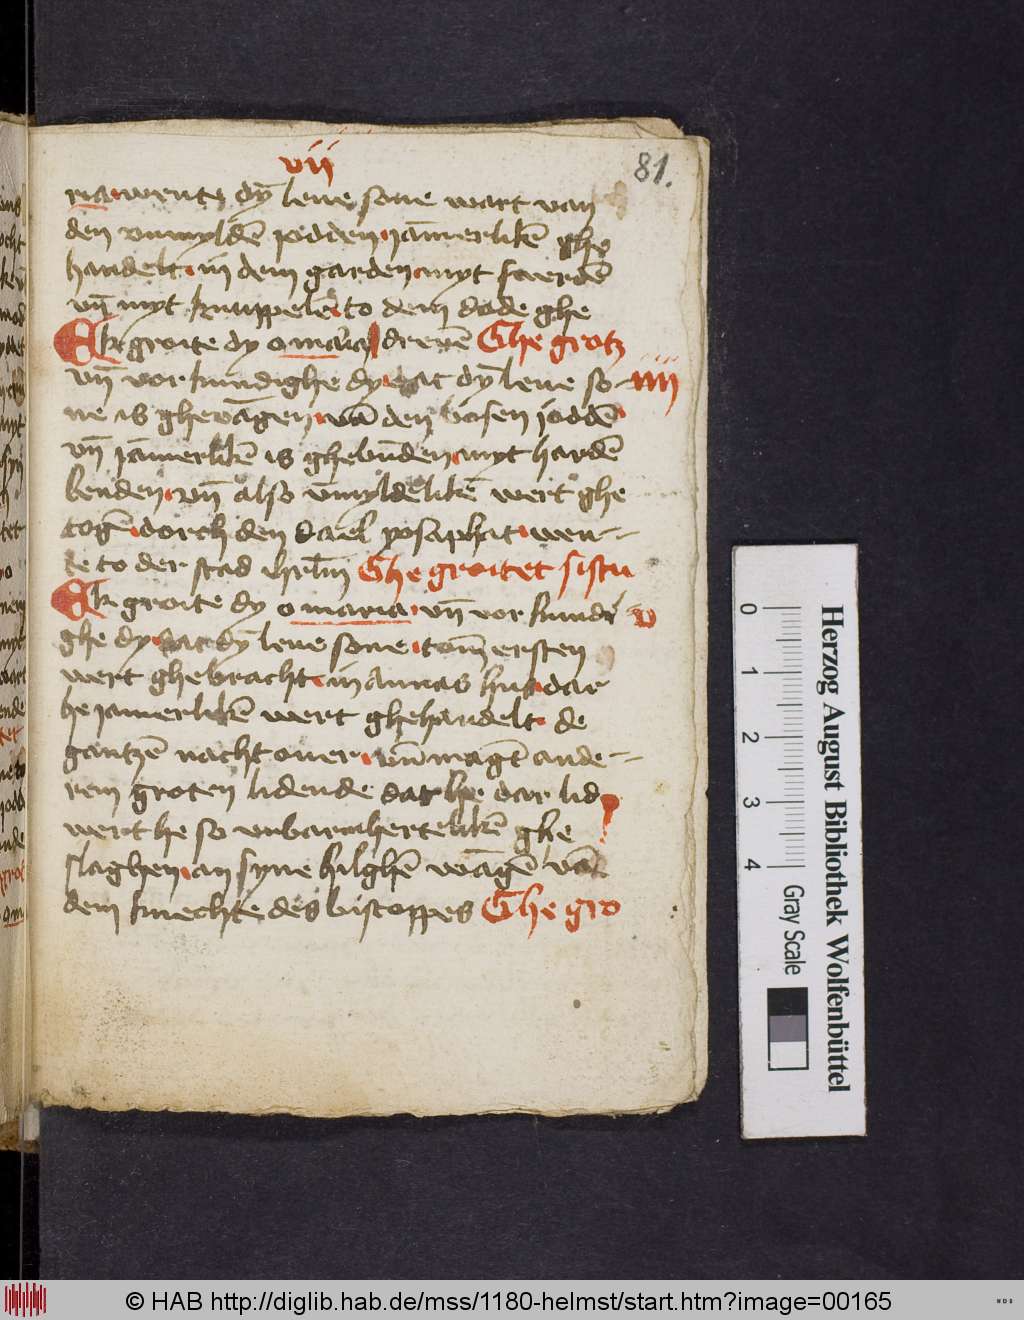 vii
81.
ria wente dy̅ leue sone wart van
den vnmylde̅ jodden ja̅merlike̅ ghe
handelt in dem garden myt swerde̅
vn̅ myt knuppele̅ to dem dode ghe
Ek groite dy o maria dreue̅ Ghe grotz
vn̅ vor kundighe dy dat dy̅ leue so- iiii
ne is gheua̅gen va̅ den bosen jodde̅
vn̅ ja̅merlike̅ is ghebu̅den myt harden
benden vn̅ also v̅myldelike̅ wert ghe
toge̅ dorch den dael yosaphat wen-
te to der stad ihrl̅m Ghe groitet sistu
Ek groite dy o maria vn̅ vor kundi v
ghe dy dat dy̅ leue sone tom̅ ersten
wert ghebracht in Annas hus dar
he jamerlike̅ wert ghehandelt de
gantze̅ nacht ouer vn̅ ma̅gt ande-
rem groten lidende dat he dar lid
wert he so vnbarmherteliken ghe
slaghen an syne hilghe̅ wa̅ge̅ va̅
dem knechte des bisscoppes Ghe gro
Herzog August Bibliothek Wolfenbüttel
0 1 2 3 4
Gray Scale
© HAB http://diglib.hab.de/mss/1180-helmst/start.htm?image=00165